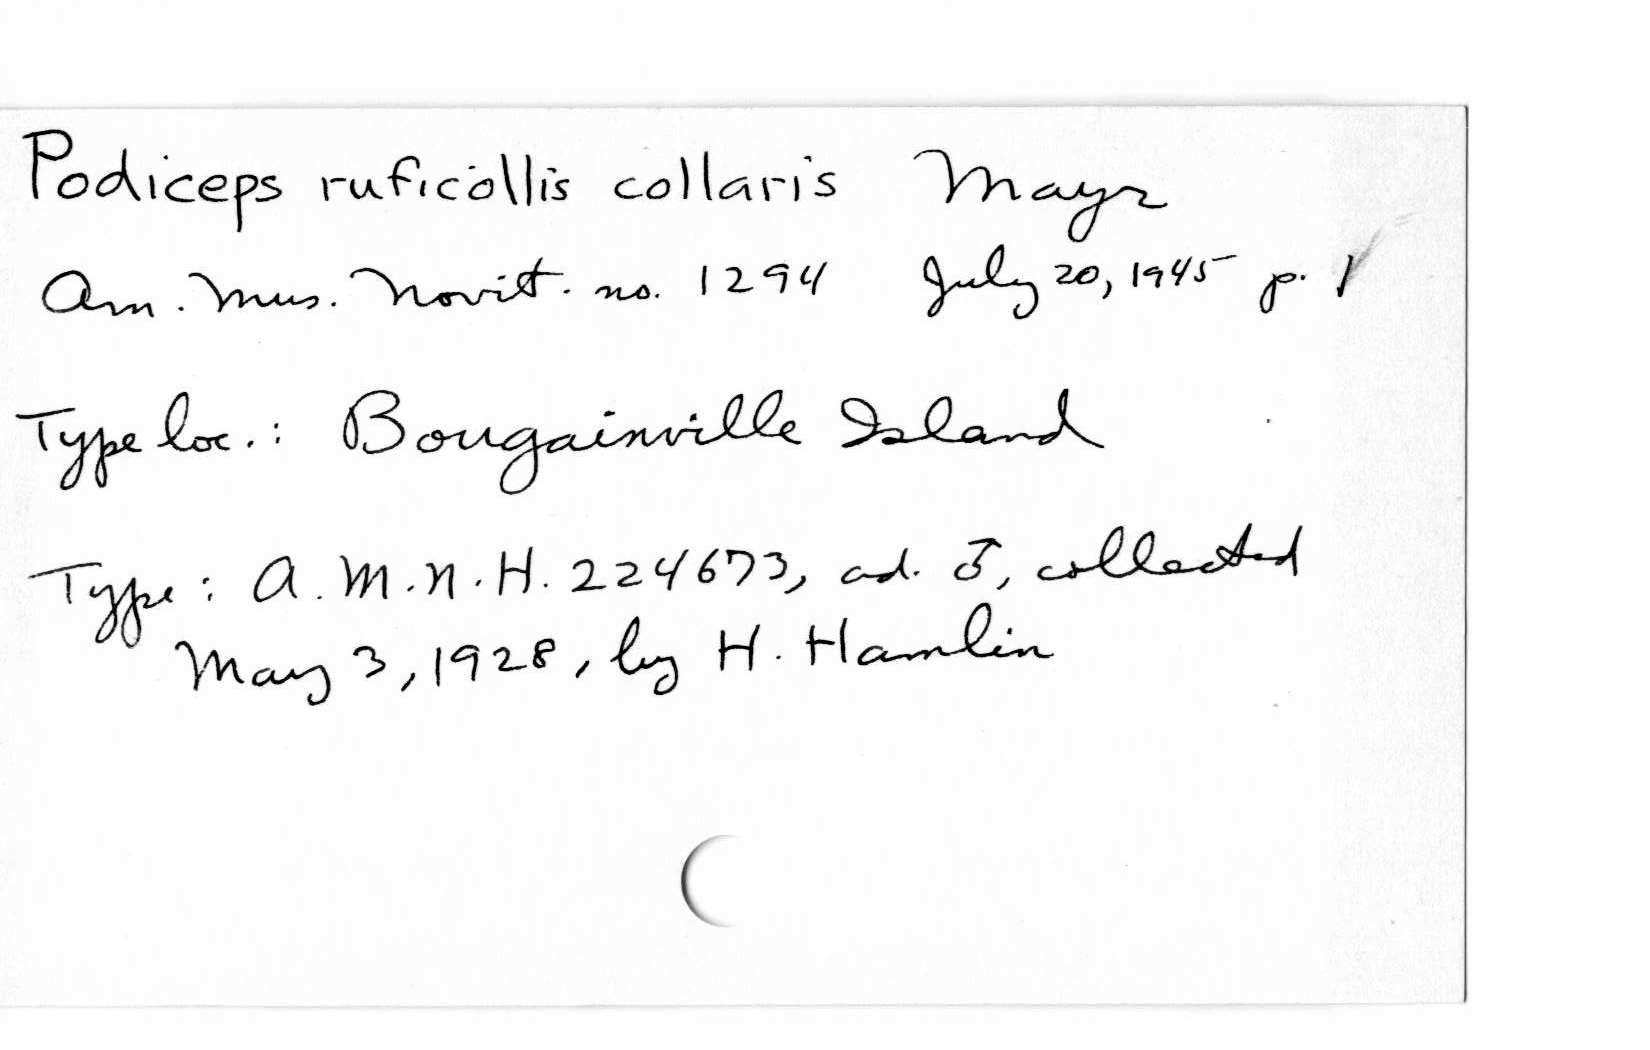 Podiceps ruficollis collaris Mayr
Am. Mus. Novit. no. 1294 July 20, 1945 p. 1
Type loc.: Bougainville Island
Type: A.M.N.H. 224673, ad. ♂, collected
May 3, 1928, by H. Hamlin